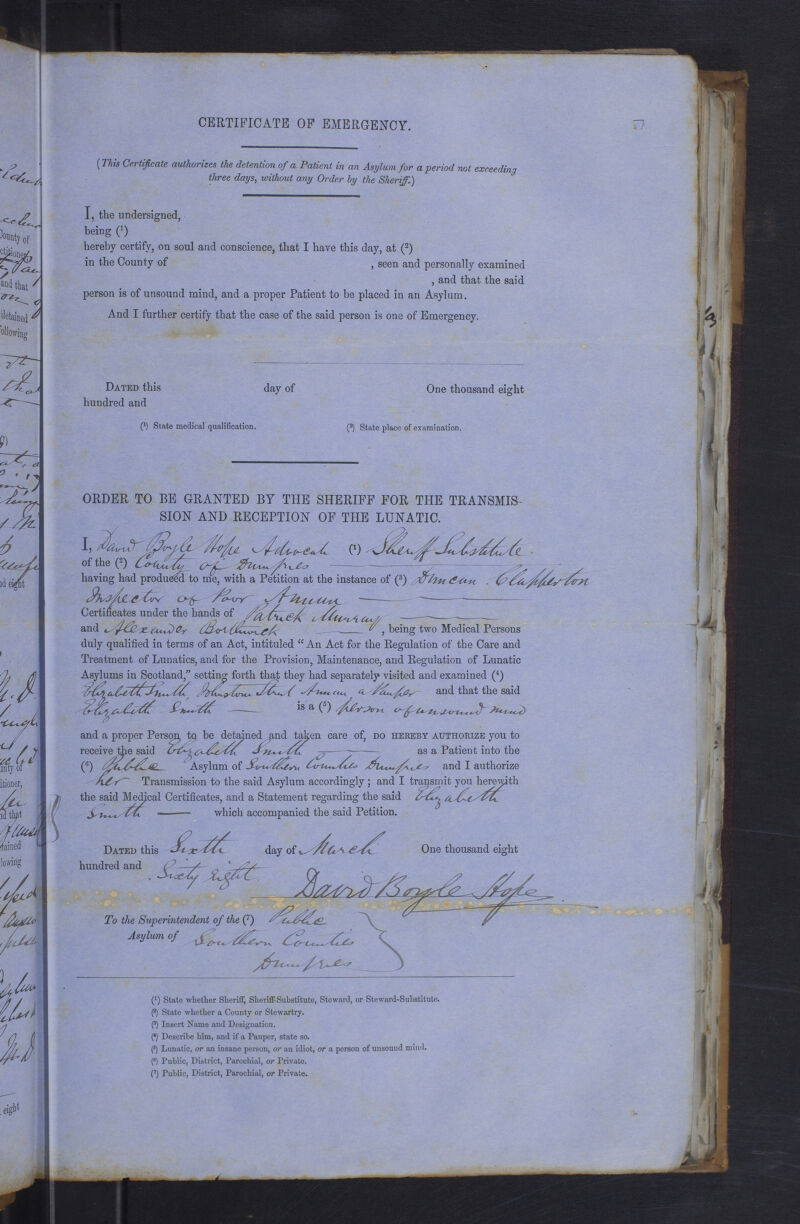 CERTIFICATE OF EMERGENCY.
(This Certificate authorizes the detention of a Patient in an Asylum for a period not exceeding
three days, without any Order by the Sheriff.)
I, the undersigned,
being (¹)
hereby certify, on soul and conscience, that I have this day, at (²)
in the County of , seen and personally examined
, and that the said
person is of unsound mind, and a proper Patient to be placed in an Asylum.
And I further certify that the case of the said person is one of Emergency.
DATED this day of One thousand eight
hundred and
(¹) State medical qualification. (²) State place of examination.
ORDER TO BE GRANTED BY THE SHERIFF FOR THE TRANSMIS-
SION AND RECEPTION OF THE LUNATIC.
I, David Boyle Hope Advocate (¹) Sheriff Substitute
of the (²) County of Dumfries
having had produced to me, with a Petition at the instance of (³) Duncan Clapperton
Inspector of Poor Annan
Certificates under the hands of Patrick Murray
and Alexander Borthwick , being two Medical Persons
duly qualified in terms of an Act, intituled "An Act for the Regulation of the Care and
Treatment of Lunatics, and for the Provision, Maintenance, and Regulation of Lunatic
Asylums in Scotland," setting forth that they had separately visited and examined (⁴)
Elizabeth Smith, Johnstone Street Annan a Pauper and that the said
Elizabeth Smith is a (⁵) person of unsound mind
and a proper Person to be detained and taken care of, DO HEREBY AUTHORIZE you to
receive the said Elizabeth Smith as a Patient into the
(⁶) Public Asylum of Southern Counties Dumfries and I authorize
her Transmission to the said Asylum accordingly; and I transmit you herewith
the said Medical Certificates, and a Statement regarding the said Elizabeth
Smith which accompanied the said Petition.
DATED this Sixth day of March One thousand eight
hundred and Sixty eight
David Boyle Hope
To the Superintendent of the (⁷) Public
Asylum of Southern Counties
Dumfries
(¹) State whether Sheriff, Sheriff-Substitute, Steward, or Steward-Substitute.
(²) State whether a County or Stewartry.
(³) Insert Name and Designation.
(⁴) Describe him, and if a Pauper, state so.
(⁵) Lunatic, or an insane person, or an idiot, or a person of unsound mind.
(⁶) Public, District, Parochial, or Private.
(⁷) Public, District, Parochial, or Private.